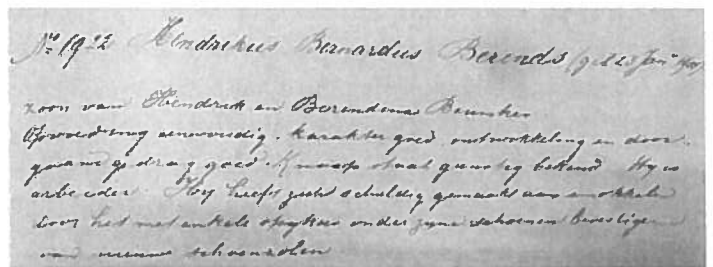 No 1922 Hendrikus Bernardus Berends (geb 25 Jan
zoon van Hendrik en Berendina Beunkes
Opvoeding eenvoudig, karakter goed, ontwikkeling en door-
gaand gedrag goed. Knaap staat gunstig bekend. Hij is
arbeider. Hij heeft zich schuldig gemaakt aan smokkelen
door het met enkele spijkers onder zijne schoenen bevestigen
van nieuwe schoenzolen